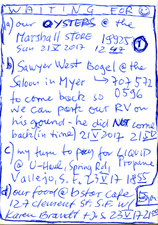 WAITING FOR 82
a) our OYSTERS @ the
Marshall STORE 19925
Sun 21 V 2017 12 47
b) Sawyer West Bogel @ the
Saloon in Myer → 707 572
to come back so 0596
we can park our RV on
his ground - he did NOT come
back (in time) 21 V 2017 21 55
c) my turn to pay for LIQUID
@ U-Haul, Spring Rd, Propane
Vallejo, S.F. 23 V 17 18 55
d) our food @ b star Cafe
127 clement St S.F. w/
Karen Brandt 23 V 17 21